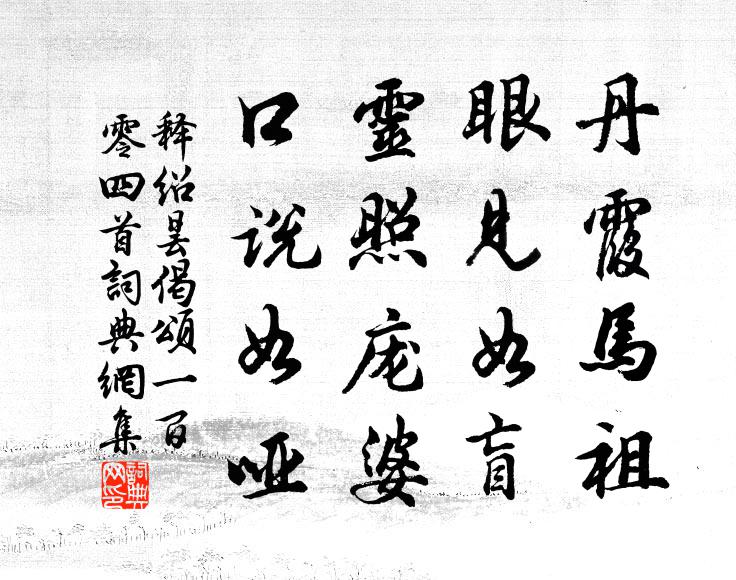 丹霞馬祖
眼見如盲
靈照庞婆
口说如哑
释绍昙偈頌一百
零四首詞典網集